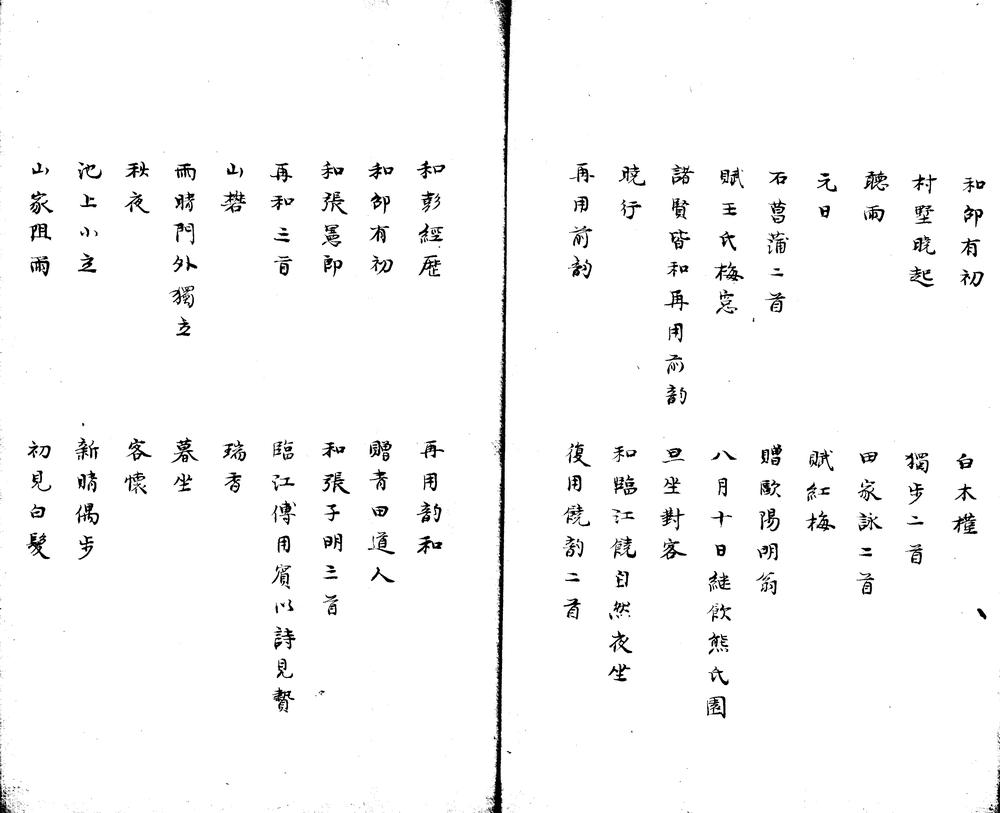 和邵有初
白木槿
村墅曉起
獨步二首
聽雨
田家詠二首
元日
賦紅梅
石菖蒲二首
贈歐陽明翁
賦王氏梅窓
八月十日継飲熊氏園
諸賢皆和再用前韵
旦坐對客
曉行
和臨江饒自然夜坐
再用前韵
復用饒韵二首
和彭經歷
再用韵和
和邵有初
贈青田道人
和張愚即
和張子明三首
再和三首
臨江傅用賓以詩見贄
山礬
瑞香
雨晴門外獨立
暮坐
秋夜
客懷
池上小立
新晴偶步
山家阻雨
初見白髮